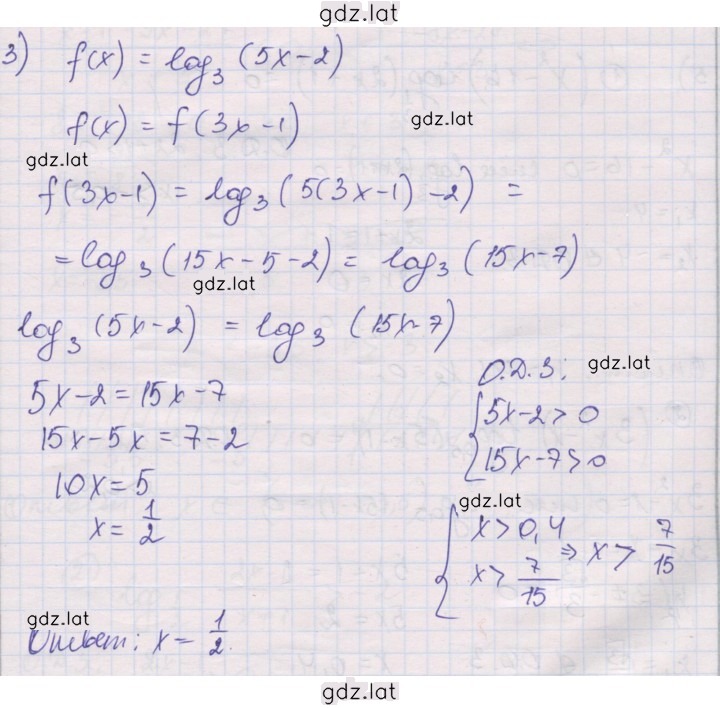 gdz.lat
3) f(x) = log₃ (5x-2)
f(x) = f(3x-1)
gdz.lat
gdz.lat
f(3x-1) = log₃ (5(3x-1)-2) =
= log₃ (15x-5-2) = log₃ (15x-7)
gdz.lat
log₃ (5x-2) = log₃ (15x-7)
5x-2=15x-7
15x-5x=7-2
10x=5
x=1/2
О.Д.З:
gdz.lat
{5x-2>0
15x-7>0
gdz.lat
{x>0,4
x>7/15 ⇒ x>7/15
gdz.lat
Ответ: x=1/2.
gdz.lat